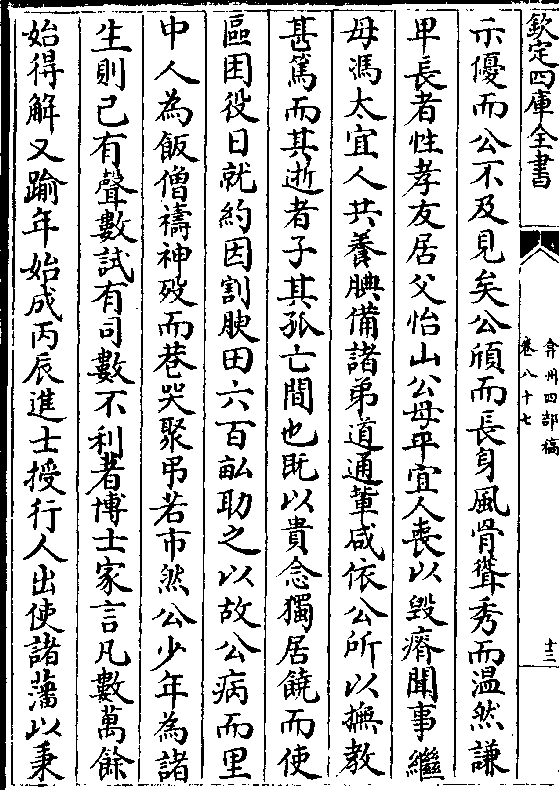 欽定四庫全書
弇州四部稿
卷八十七
十三
示優而公不及見矣公頎而長身風骨聳秀而温然謙
甲長者性孝友居父怡山公母平宜人喪以毀瘠聞事繼
母馮太宜人共養腆備諸弟道通軰咸依公所以撫教
甚篤而其逝者子其孤亡間也既以貴念獨居饒而使
區困役日就約因割腴田六百畝助之以故公病而里
中人為飯僧禱神殁而巷哭聚弔若市然公少年為諸
生則已有聲數試有司數不利著博士家言凡數萬餘
始得解又踰年始成丙辰進士授行人出使諸藩以秉